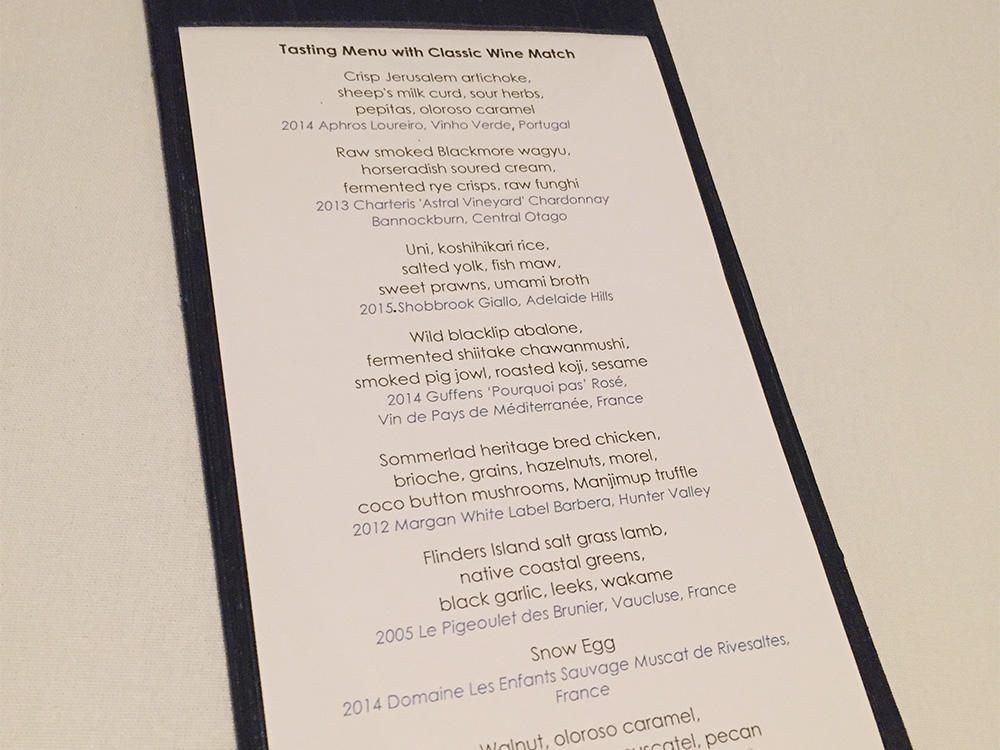 Tasting Menu with Classic Wine Match
Crisp Jerusalem artichoke,
sheep's milk curd, sour herbs,
pepitas, oloroso caramel
2014 Aphros Loureiro, Vinho Verde, Portugal
Raw smoked Blackmore wagyu,
horseradish soured cream,
fermented rye crisps, raw funghi
2013 Charteris 'Astral Vineyard' Chardonnay
Bannockburn, Central Otago
Uni, koshihikari rice,
salted yolk, fish maw,
sweet prawns, umami broth
2015 Shobbrook Giallo, Adelaide Hills
Wild blacklip abalone,
fermented shiitake chawanmushi,
smoked pig jowl, roasted koji, sesame
2014 Guffens 'Pourquoi pas' Rosé,
Vin de Pays de Méditerranée, France
Sommerlad heritage bred chicken,
brioche, grains, hazelnuts, morel,
coco button mushrooms, Manjimup truffle
2012 Margan White Label Barbera, Hunter Valley
Flinders Island salt grass lamb,
native coastal greens,
black garlic, leeks, wakame
2005 Le Pigeoulet des Brunier, Vaucluse, France
Snow Egg
2014 Domaine Les Enfants Sauvage Muscat de Rivesaltes,
France
Walnut, oloroso caramel,
pecan